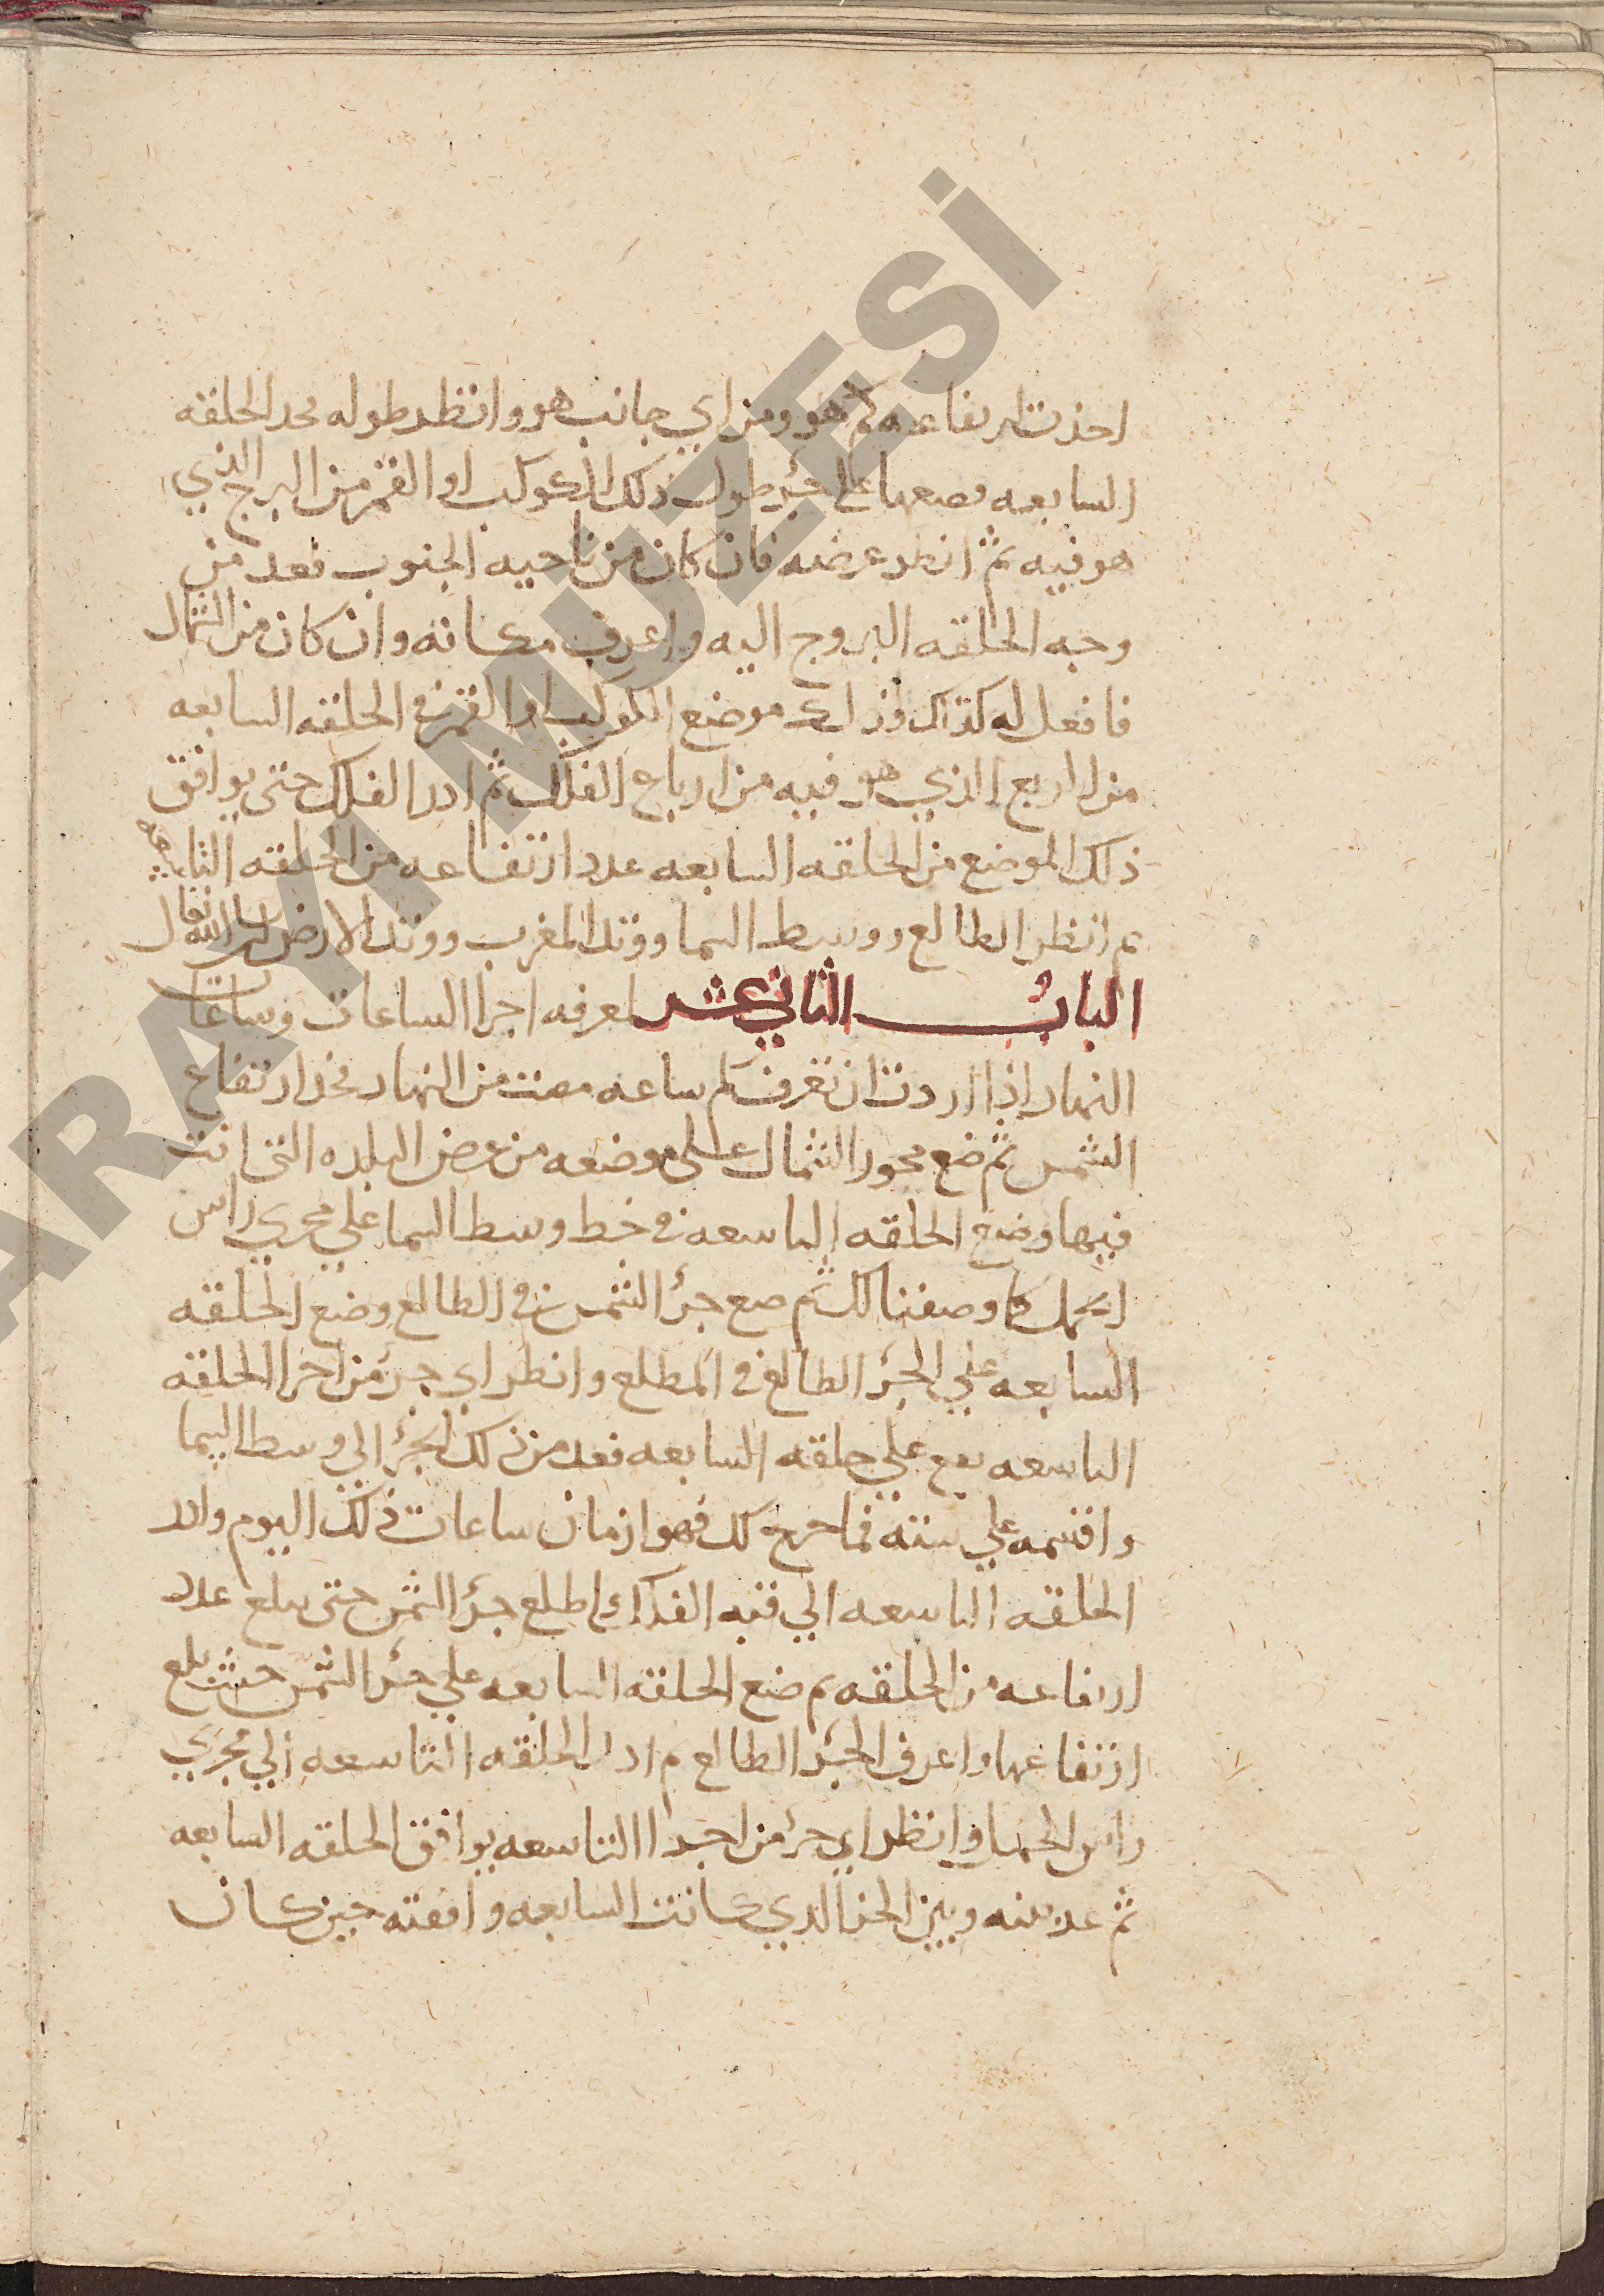 احذت ارتفاعه كم هو ومن اي جانب هو وانظر طوله محد الحلقه
السابعه فصعها على جزء طول ذلك الكوكب او القمر من البرج الذي
هو فيه ثم انظر عرضه فان كان من ناحيه الجنوب فعد من
وجه الحلقه البروج اليه واعرف مكانه وان كان من الشمال
فافعل له كذلك موضع الكوكب او القمر في الحلقه السابعه
من الربع الذي هو فيه من ارباع الفلك ثم ادر الفلك حتى يوافق
ذلك الموضع من الحلقه السابعه عدد ارتفاعه من الحلقه
ثم انظر الطالع ووسط السما ووتد المغرب ووتد الارض
الباب الثاني عشر لمعرفه اجزا الساعات وساعات
النهار اذا اردت ان تعرف كم ساعه مضت من النهار فخذ ارتفاع
الشمس ثم ضع محور الشمال على موضعه من عرض البلده التي انت
فيها وضع الحلقه التاسعه في خط وسط السما على مجري راس
الحمل كما وصفنا لك ثم ضع جزء الشمس في الطالع وضع الحلقه
السابعه علي الجزء الطالع في المطلع وانظر اي جزء من اجزا الحلقه
التاسعه يقع علي حلقه السابعه فعد من ذلك الجزء الي وسط السما
واقسمه علي سته فما خرج لك فهو ازمان ساعات ذلك اليوم وادر
الحلقه التاسعه الي اطلع جزء الشمس حتى يبلغ عدد
ارتفاعه من الحلقه ثم ضع الحلقه السابعه علي جزء الشمس حيث بلغ
ارتفاعها واعرف الجزء الطالع ثم ادر الحلقه التاسعه الي مجري
راس الحمل وانظر اي جزء من اجزا التاسعه يوافق الحلقه السابعه
ثم عد بينه وبين الجزء الذي كانت السابعه وافقته حين كان
ARAYI MÜZESİ